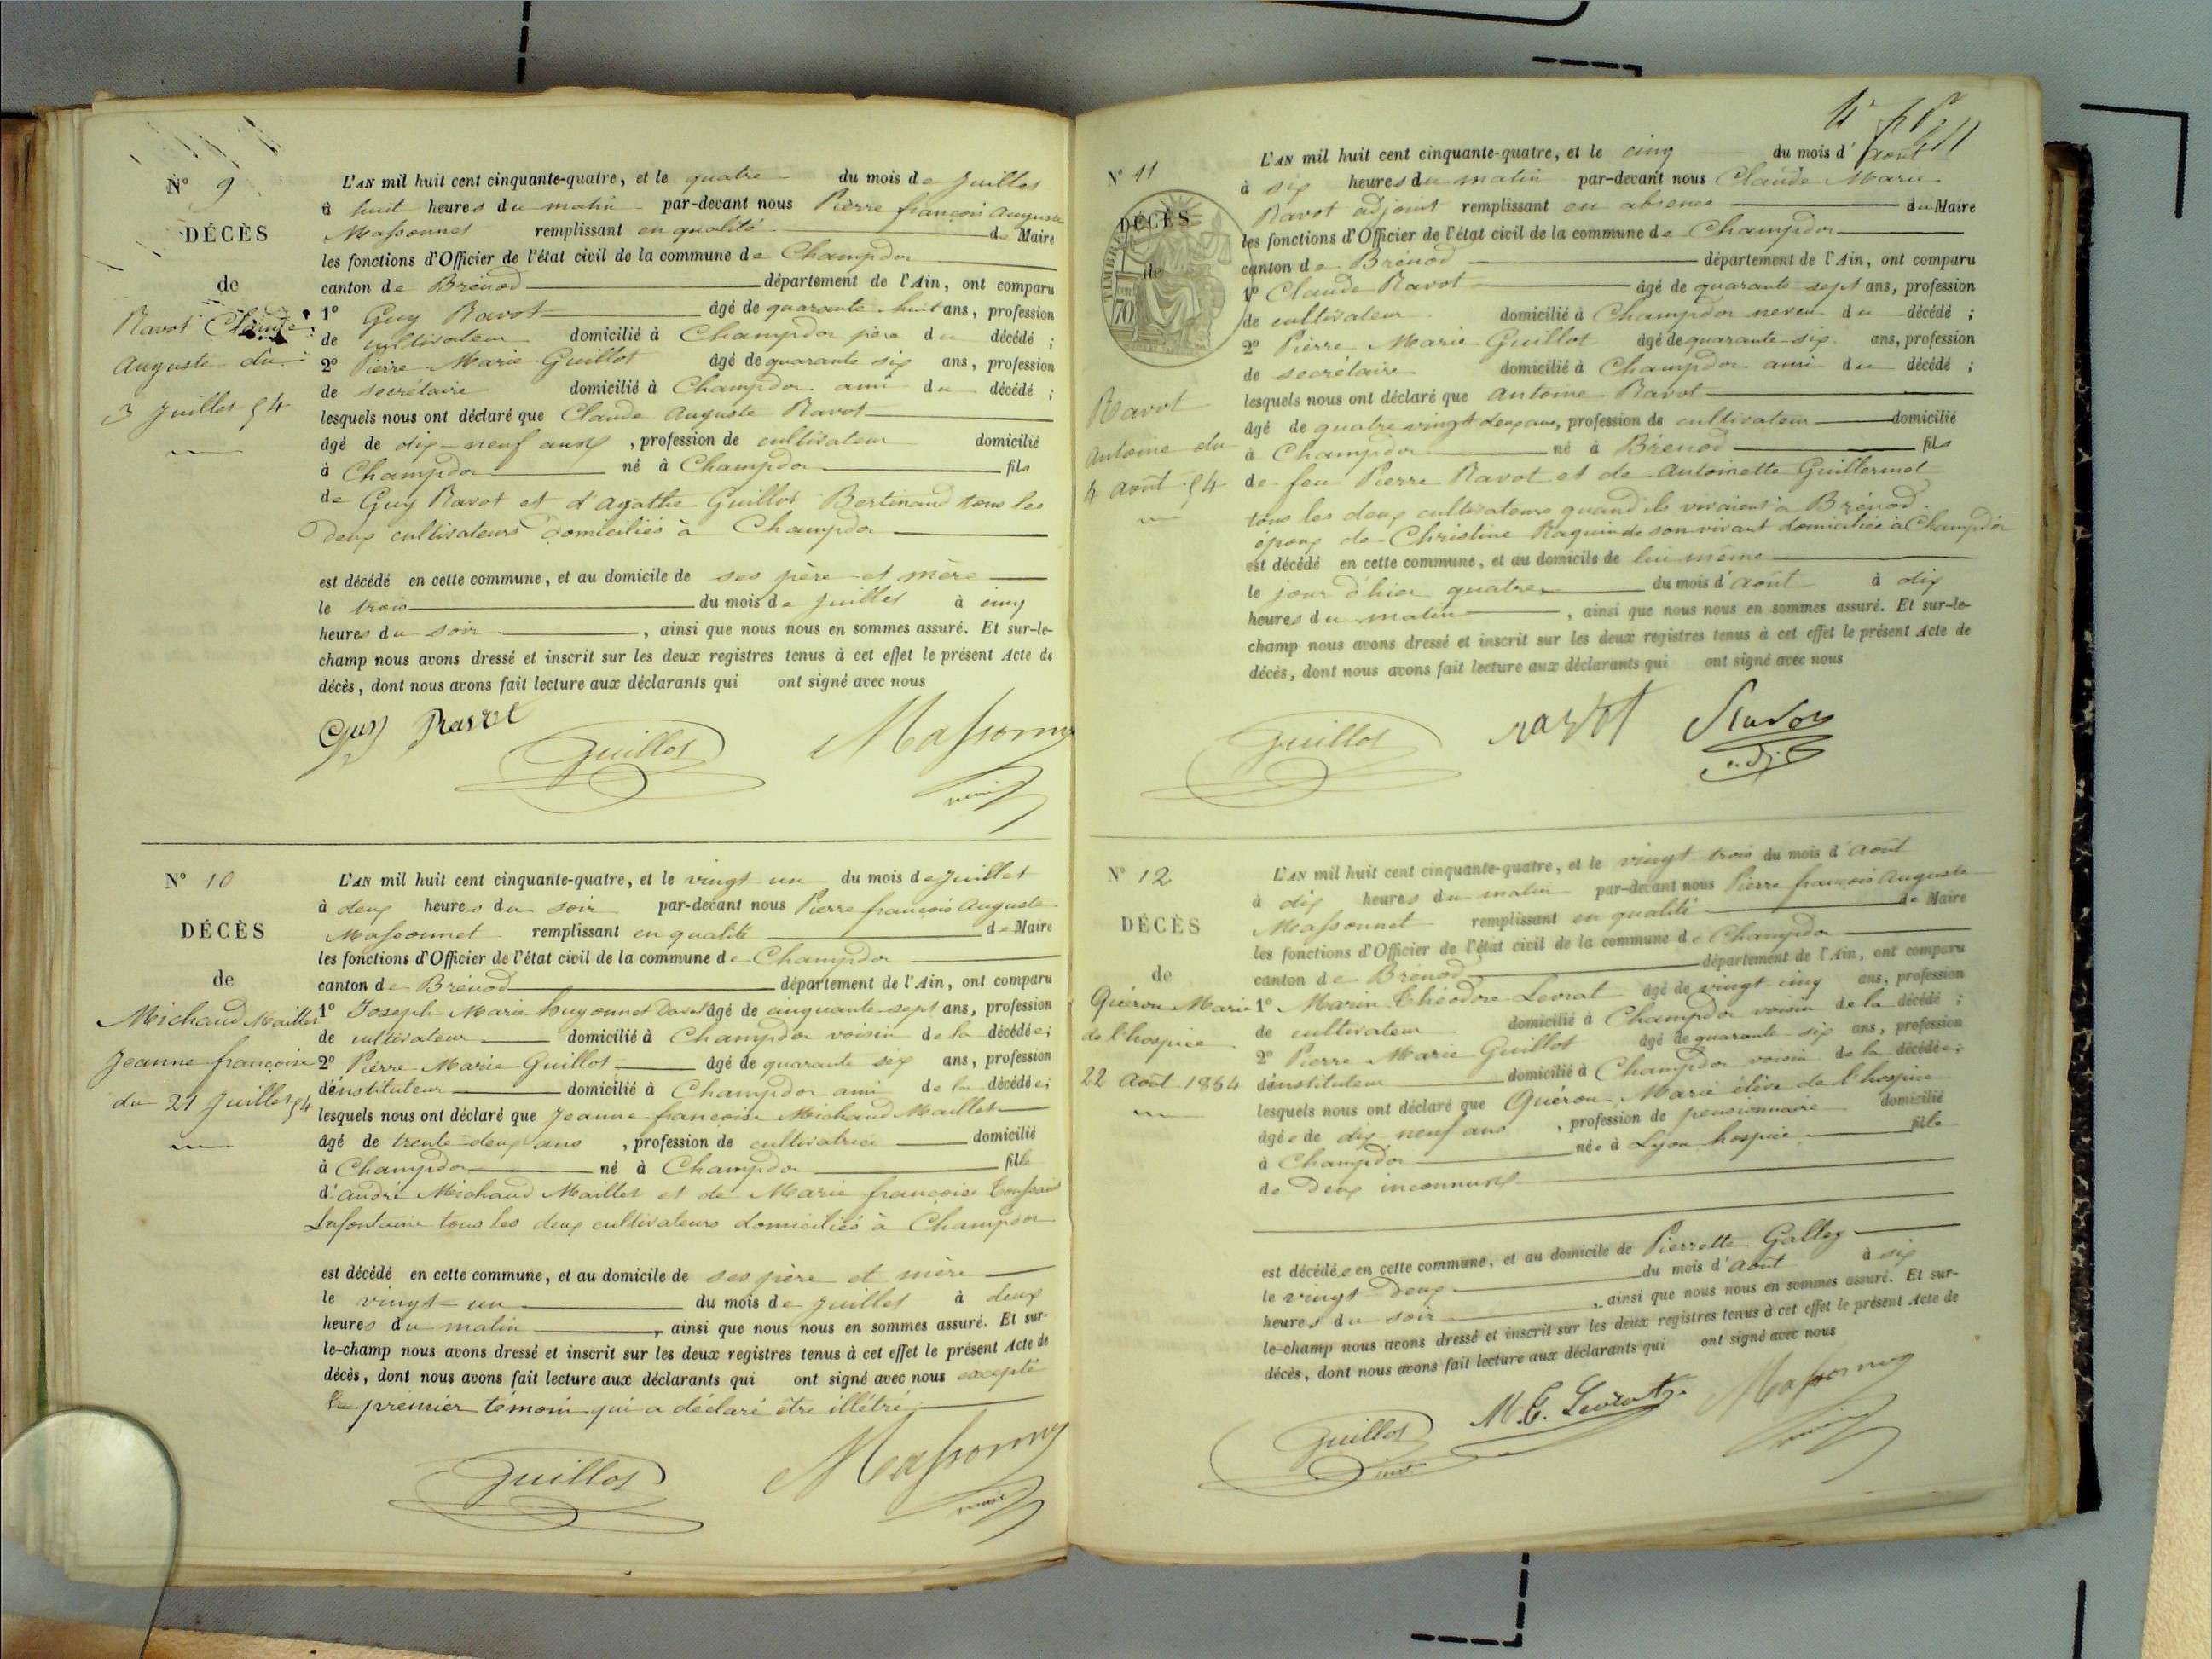 N° 9
DÉCÈS
de
Ravot Claude
Auguste du
3 Juillet 54
L'AN mil huit cent cinquante-quatre, et le quatre du mois de Juillet
à huit heures du matin par-devant nous Pierre françois Auguste
Massonnet remplissant en qualité de Maire
les fonctions d'Officier de l'état civil de la commune de Champdor
canton de Brénod département de l'Ain, ont comparu
1° Guy Ravot âgé de quarante huit ans, profession
de cultivateur domicilié à Champdor père du décédé ;
2° Pierre Marie Guillot âgé de quarante six ans, profession
de secrétaire domicilié à Champdor ami du décédé ;
lesquels nous ont déclaré que Claude Auguste Ravot
âgé de dix-neuf ans , profession de cultivateur domicilié
à Champdor né à Champdor fils
de Guy Ravot et d'Agathe Guillot Bertinand tous les
deux cultivateurs domiciliés à Champdor
est décédé en cette commune, et au domicile de ses père et mère
le trois du mois de Juillet à cinq
heures du soir , ainsi que nous nous en sommes assuré. Et sur-le-
champ nous avons dressé et inscrit sur les deux registres tenus à cet effet le présent Acte de
décès, dont nous avons fait lecture aux déclarants qui ont signé avec nous
Guy Ravot Guillot Massonnet
maire
N° 10
DÉCÈS
de
Michaud Maillet
Jeanne françoise
du 21 Juillet 54
L'AN mil huit cent cinquante-quatre, et le vingt un du mois de Juillet
à deux heures du soir par-devant nous Pierre françois Auguste
Massonnet remplissant en qualité de Maire
les fonctions d'Officier de l'état civil de la commune de Champdor
canton de Brénod département de l'Ain, ont comparu
1° Joseph Marie huyonnet âgé de cinquante sept ans, profession
de cultivateur domicilié à Champdor voisin de la décédée;
2° Pierre Marie Guillot âgé de quarante six ans, profession
d'instituteur domicilié à Champdor ami de la décédée;
lesquels nous ont déclaré que Jeanne françoise Michaud Maillet
âgé de trente-deux ans , profession de cultivatrice domicilié
à Champdor né à Champdor fille
d'André Michaud Maillet et de Marie françoise
Lafontaine tous les deux cultivateurs domiciliés à Champdor
est décédé en cette commune, et au domicile de ses père et mère
le vingt-un du mois de Juillet à deux
heures du matin , ainsi que nous nous en sommes assuré. Et sur-
le-champ nous avons dressé et inscrit sur les deux registres tenus à cet effet le présent Acte de
décès, dont nous avons fait lecture aux déclarants qui ont signé avec nous excepté
le premier témoin qui a déclaré être illétré
Guillot Massonnet
maire
N° 11
DÉCÈS
de
TIMBRE
70
Ravot
Antoine du
4 Août 54
L'AN mil huit cent cinquante-quatre, et le cinq du mois d'Août
à six heures du matin par-devant nous Claude Marie
Ravot adjoint remplissant en absence du Maire
les fonctions d'Officier de l'état civil de la commune de Champdor
canton de Brénod département de l'Ain, ont comparu
1° Claude Ravot âgé de quarante sept ans, profession
de cultivateur domicilié à Champdor neveu du décédé ;
2° Pierre Marie Guillot âgé de quarante six ans, profession
de secrétaire domicilié à Champdor ami du décédé ;
lesquels nous ont déclaré que Antoine Ravot
âgé de quatre vingt deux ans, profession de cultivateur domicilié
à Champdor né à Brénod fils
de feu Pierre Ravot et de Antoinette Guillermet
tous les deux cultivateurs quand ils vivaient à Brénod.
époux de Christine Raquin de son vivant domiciliée à Champdor
est décédé en cette commune, et au domicile de lui même
le jour d'hier quatre du mois d'Août à dix
heures du matin , ainsi que nous nous en sommes assuré. Et sur-le-
champ nous avons dressé et inscrit sur les deux registres tenus à cet effet le présent Acte de
décès, dont nous avons fait lecture aux déclarants qui ont signé avec nous
Guillot ravot Ravot
adj
N° 12
DÉCÈS
de
Quéron Marie
de l'hospice
22 Août 1854
L'AN mil huit cent cinquante-quatre, et le vingt trois du mois d'Août
à dix heures du matin par-devant nous Pierre françois Auguste
Massonnet remplissant en qualité de Maire
les fonctions d'Officier de l'état civil de la commune de Champdor
canton de Brénod département de l'Ain, ont comparu
1° Marin Théodore Levrat âgé de vingt-cinq ans, profession
de cultivateur domicilié à Champdor voisin de la décédé ;
2° Pierre Marie Guillot âgé de quarante-six ans, profession
d'instituteur domicilié à Champdor voisin de la décédée;
lesquels nous ont déclaré que Quéron Marie élève de l'hospice
âgée de dix neuf ans , profession de pensionnaire domicilié
à Champdor née à Lyon hospice fille
de deux inconnus
est décédée en cette commune, et au domicile de Pierrette Galley
le vingt deux du mois d'Août à six
heures du soir , ainsi que nous nous en sommes assuré. Et sur-
le-champ nous avons dressé et inscrit sur les deux registres tenus à cet effet le présent Acte de
décès, dont nous avons fait lecture aux déclarants qui ont signé avec nous
Guillot M.T. Levrat Massonnet
inst maire